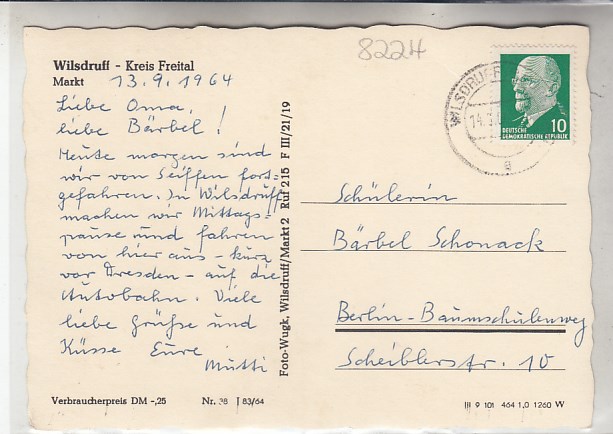 8224
Wilsdruff - Kreis Freital
Markt 13.9.1964
Liebe Oma,
liebe Bärbel!
Heute morgen sind
wir von Seiffen fort-
gefahren. In Wilsdruff
machen wir Mittags-
pause und fahren
von hier aus - kurz
vor Dresden - auf die
Autobahn. Viele
liebe Grüße und
Küsse Eure
Mutti
Verbraucherpreis DM -,25 Nr. 38 J 83/64
Foto-Wugk, Wilsdruff/Markt 2 Ruf 215 F III/21/19
WILSDRUFF
14.9.
a
DEUTSCHE
DEMOKRATISCHE REPUBLIK 10
Schülerin
Bärbel Schonack
Berlin-Baumschulenweg
Scheiblerstr. 10
III 9 101 464 1,0 1260 W